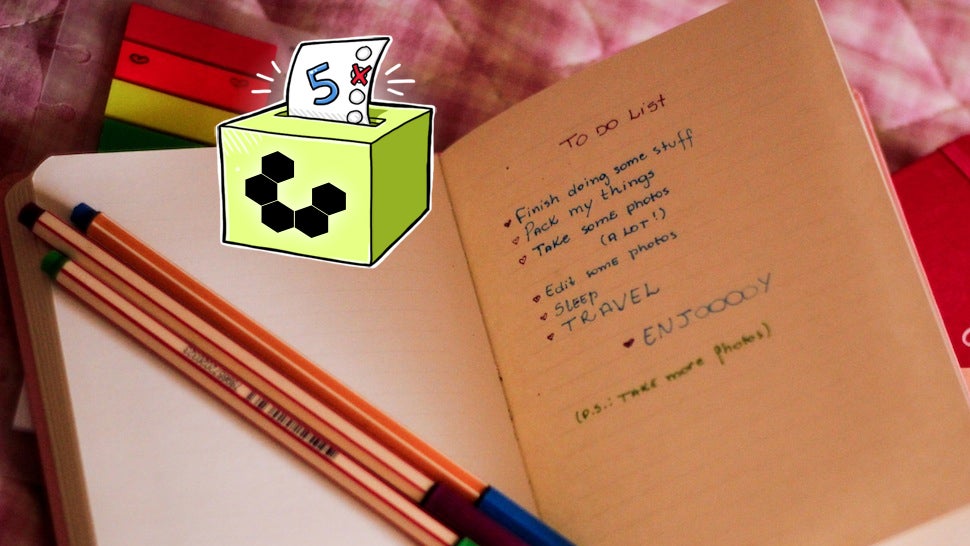 5
TO DO LIST
Finish doing some stuff
PACK my things
TAKE some photos
(A LOT!)
Edit some photos
SLEEP
TRAVEL
ENJOOOOY
(P.S.: TAKE more photos)